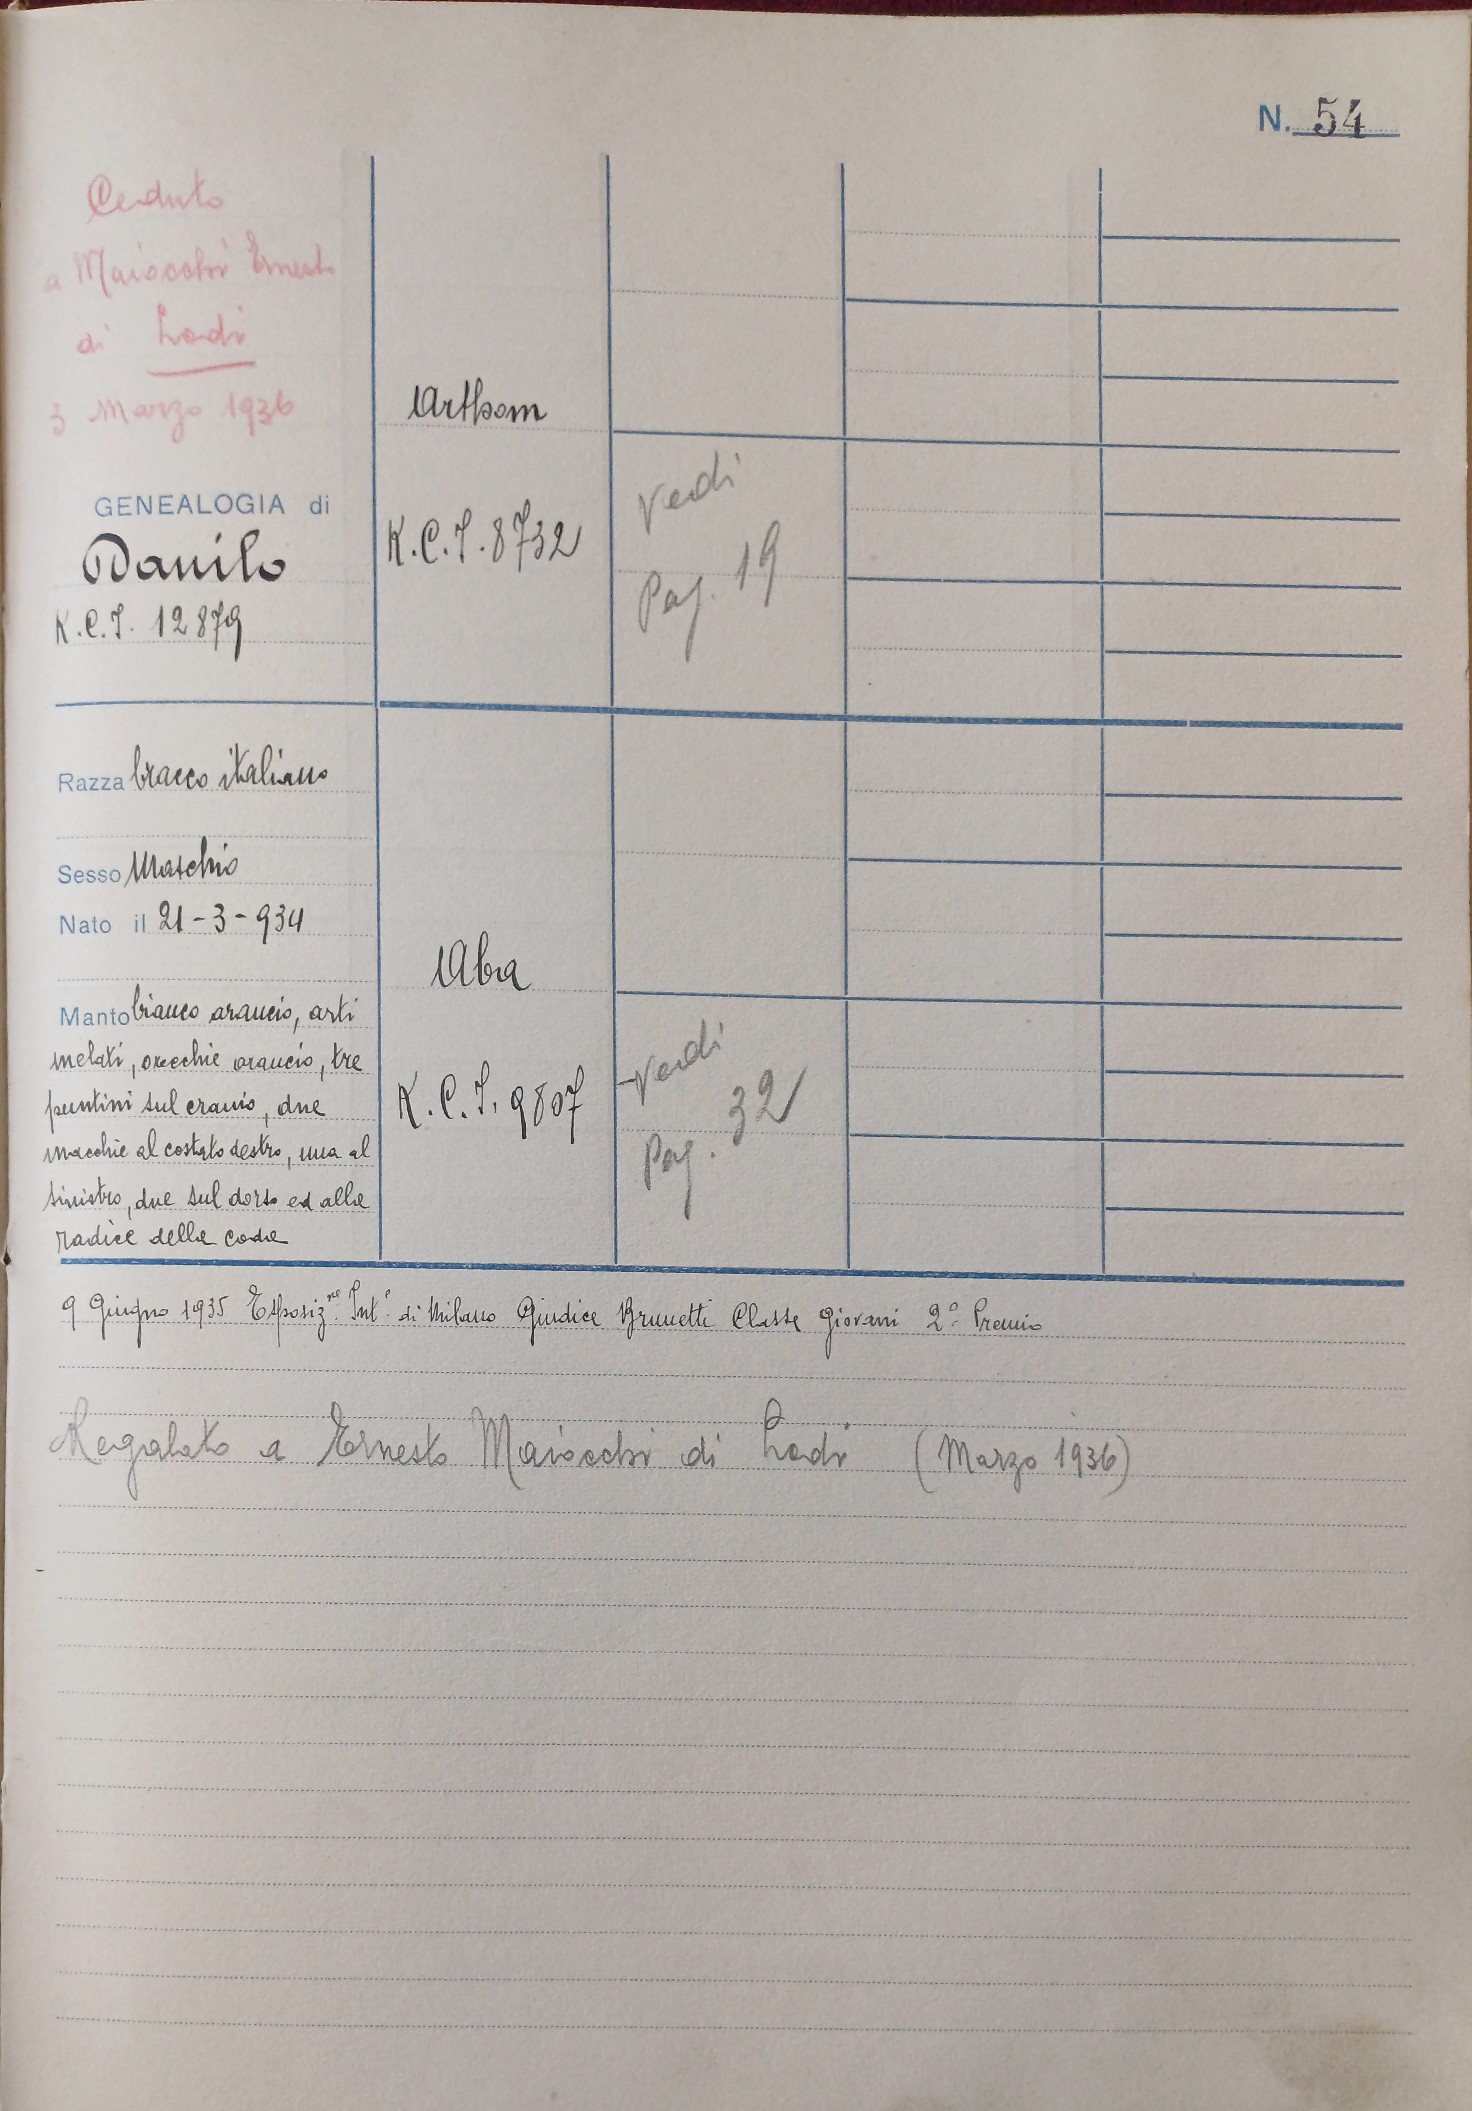 N. 54
Ceduto
a Maiocchi Ernesto
di Lodi
3 Marzo 1936
GENEALOGIA di
Danilo
K.C.I. 12879
Razza bracco italiano
Sesso Maschio
Nato il 21-3-934
Manto bianco arancio, arti
melati, orecchie arancio, tre
puntini sul cranio, due
macchie al costato destro, una al
sinistro, due sul dorso ed alla
radice della coda
Arthom
K.C.I. 8732
Vedi
Pag. 19
Abra
K.C.I. 9807
Vedi
Pag. 32
9 Giugno 1935 Esposiz.ne Int.e di Milano Giudice Brunetti Classe Giovani 2º Premio
Regalato a Ernesto Maiocchi di Lodi (Marzo 1936)